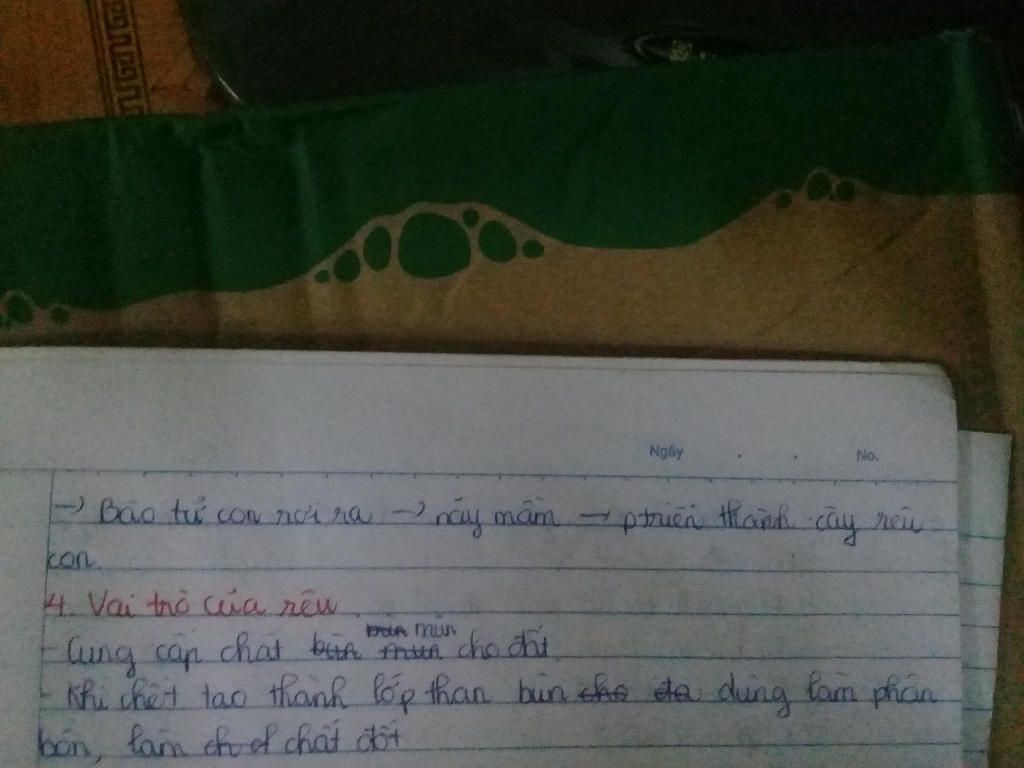 Ngày . . No.
-> Bào tử con rơi ra -> nảy mầm -> ptriển thành cây rêu
con.
4. Vai trò của rêu.
- Cung cấp chất mùn cho đất
- Khi chết tạo thành lớp than bùn dùng làm phân
bón, làm chất đốt